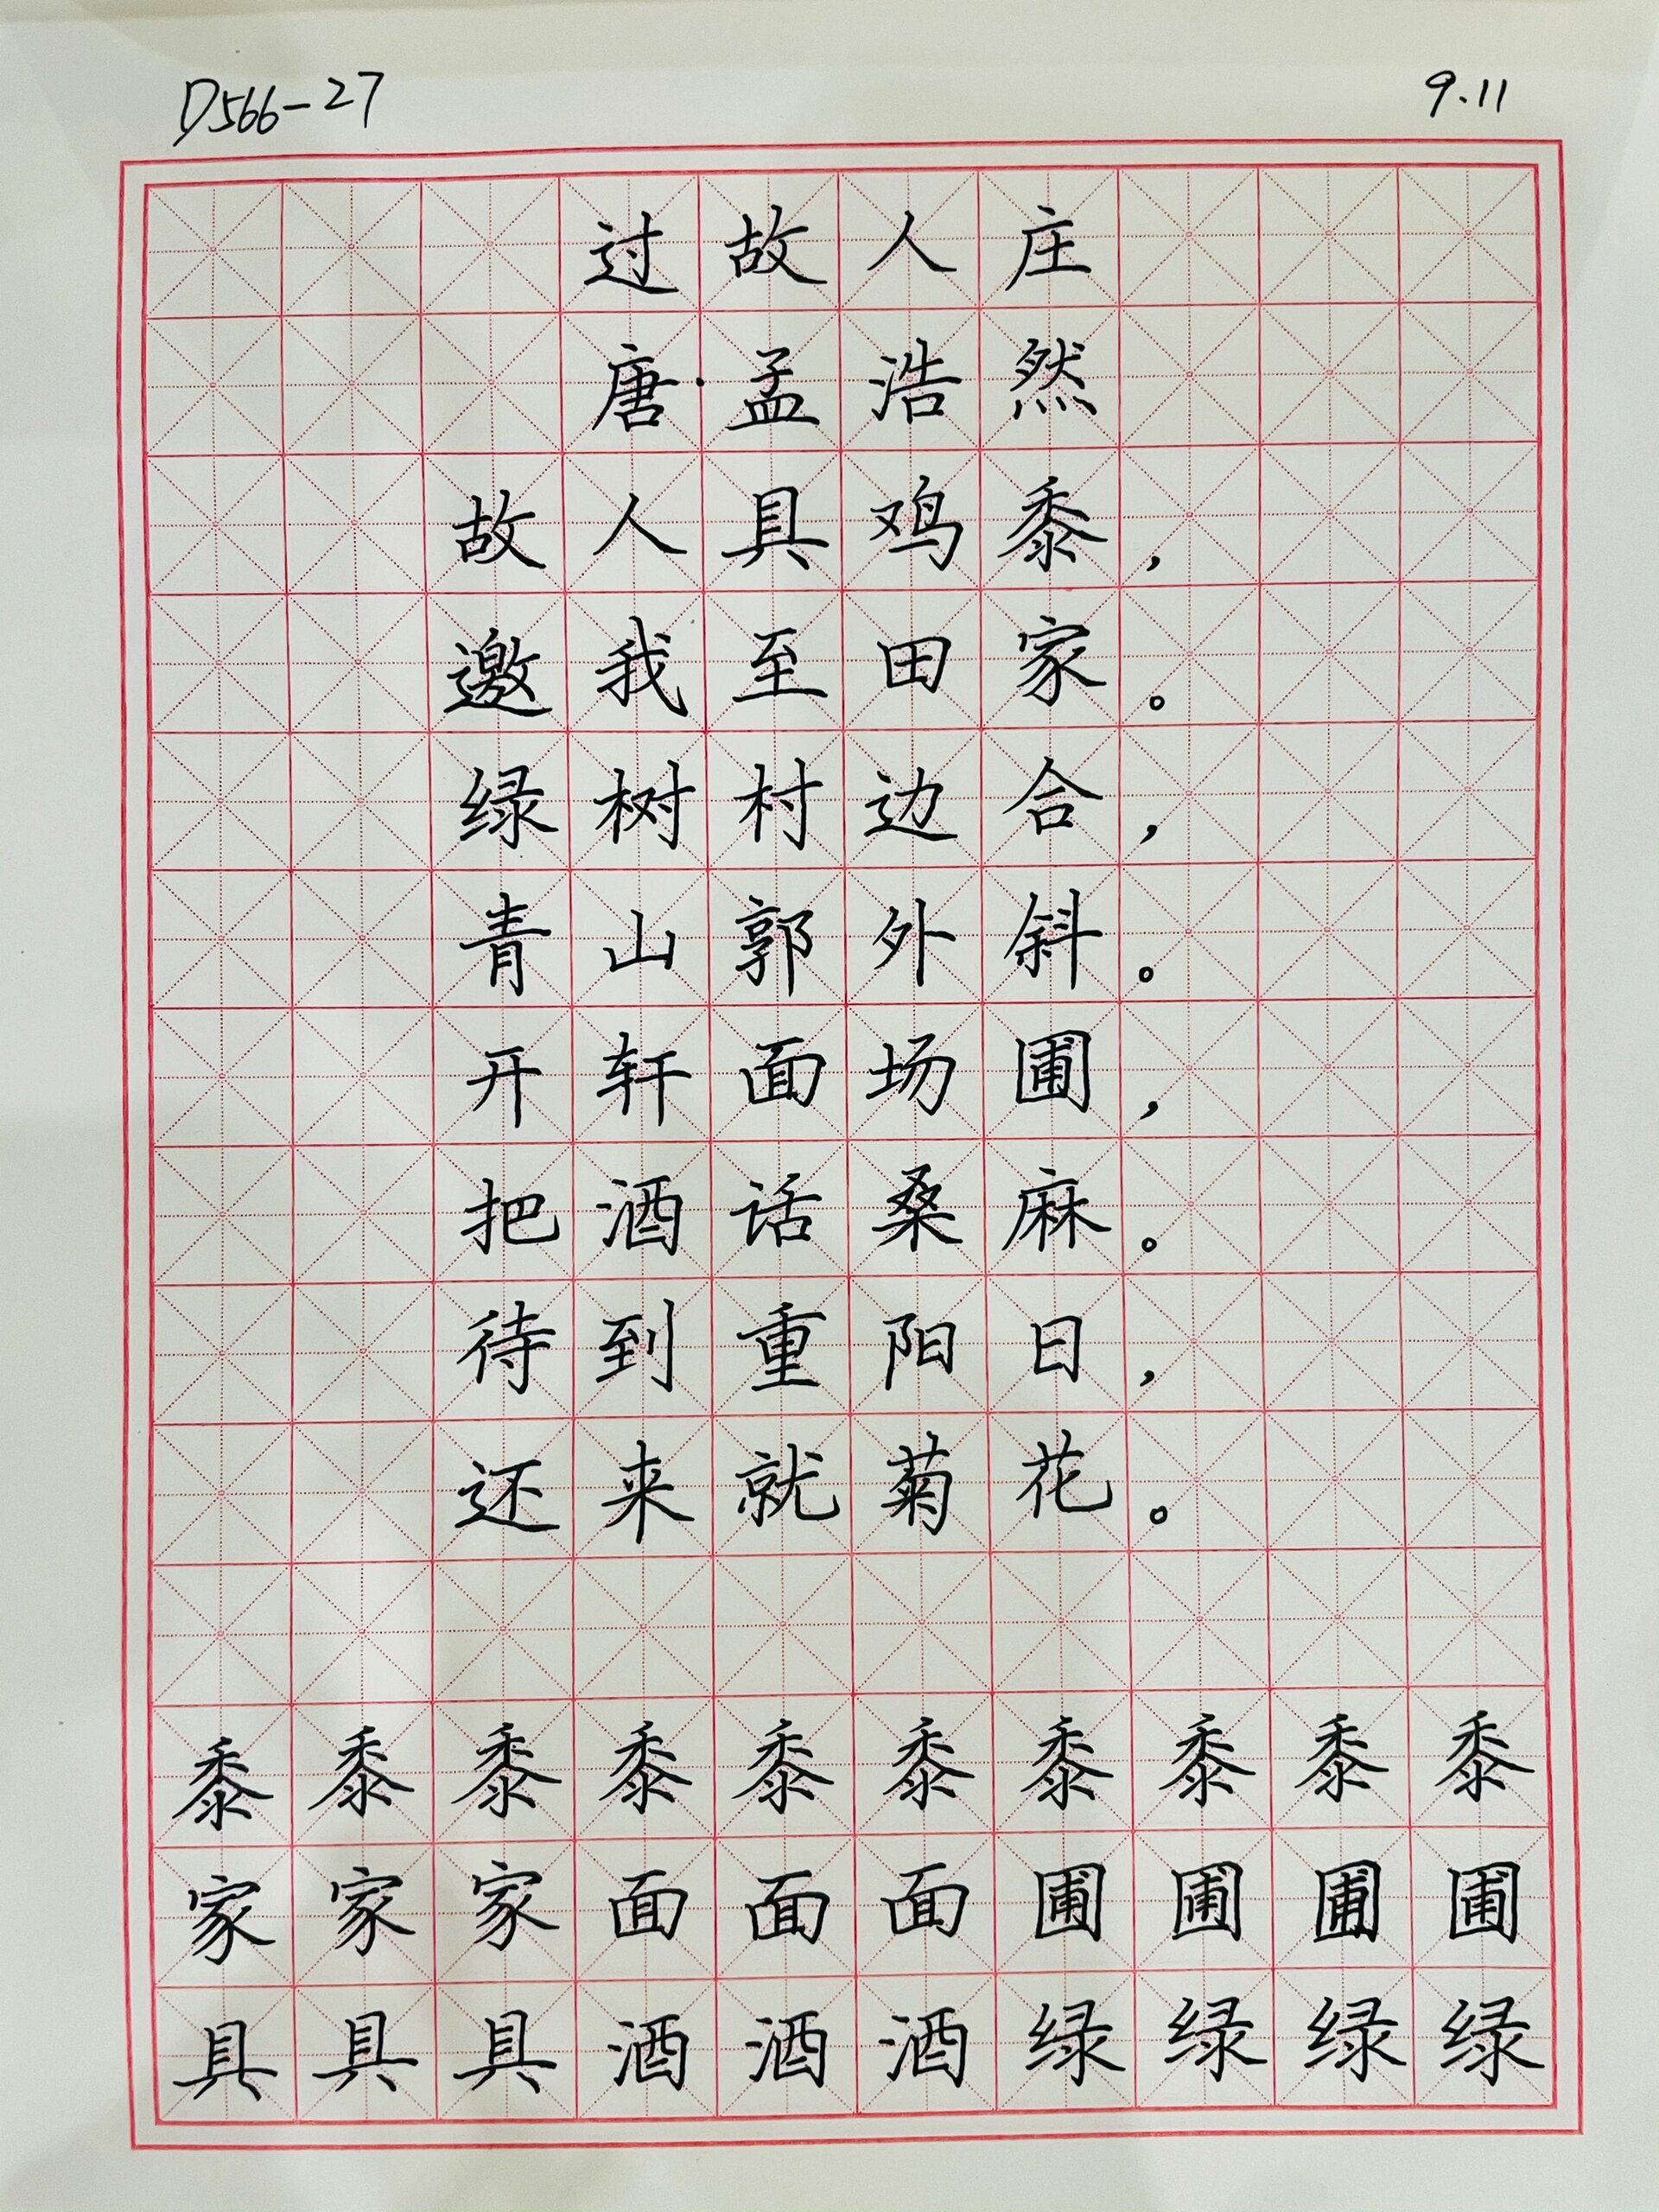 D566-27 9.11
过故人庄
唐·孟浩然
故人具鸡黍，
邀我至田家。
绿树村边合，
青山郭外斜。
开轩面场圃，
把酒话桑麻。
待到重阳日，
还来就菊花。
黍黍黍黍黍黍黍黍黍黍
家家家面面面圃圃圃圃
具具具酒酒酒绿绿绿绿